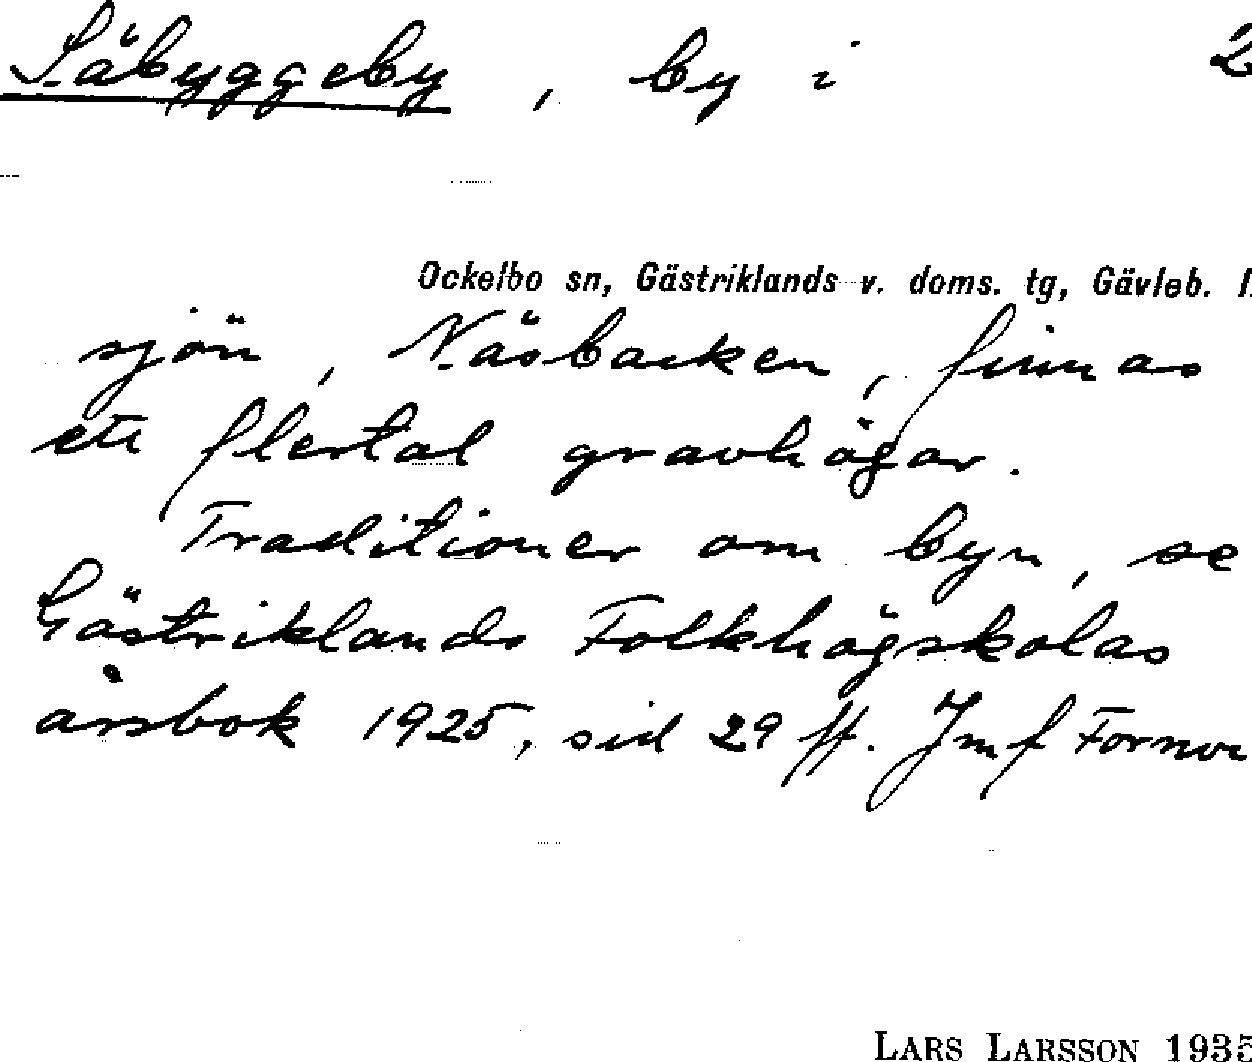 Säbyggeby, by i 2
Ockelbo sn, Gästriklands v. doms. tg, Gävleb. l.
sjön, Näsbacken, finnas
ett flertal gravhögar.
Traditioner om byn, se
Gästriklands Folkhögskolas
årsbok 1925, sid 29 ff. Jmf Fornvr
LARS LARSSON 1935